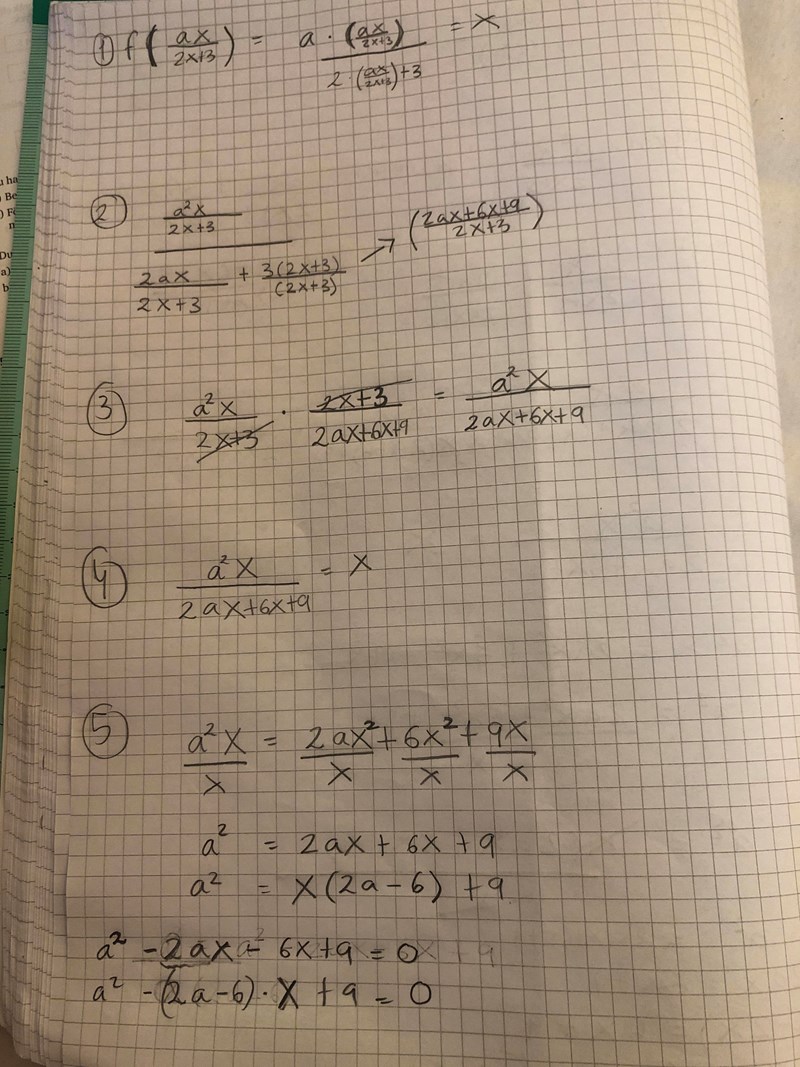 ① f(ax/(2x+3)) = (a · (ax/(2x+3)))/(2 · (ax/(2x+3)) + 3) = x
② (a²x/(2x+3))/(2ax/(2x+3) + 3(2x+3)/(2x+3)) → ((2ax+6x+9)/(2x+3))
③ a²x/(2x+3) · (2x+3)/(2ax+6x+9) = a²x/(2ax+6x+9)
④ a²x/(2ax+6x+9) = x
⑤ a²x/x = 2ax²/x + 6x²/x + 9x/x
a² = 2ax + 6x + 9
a² = x(2a-6) + 9
a² - 2ax - 6x+9 = 0
a² - (2a-6)·x + 9 = 0